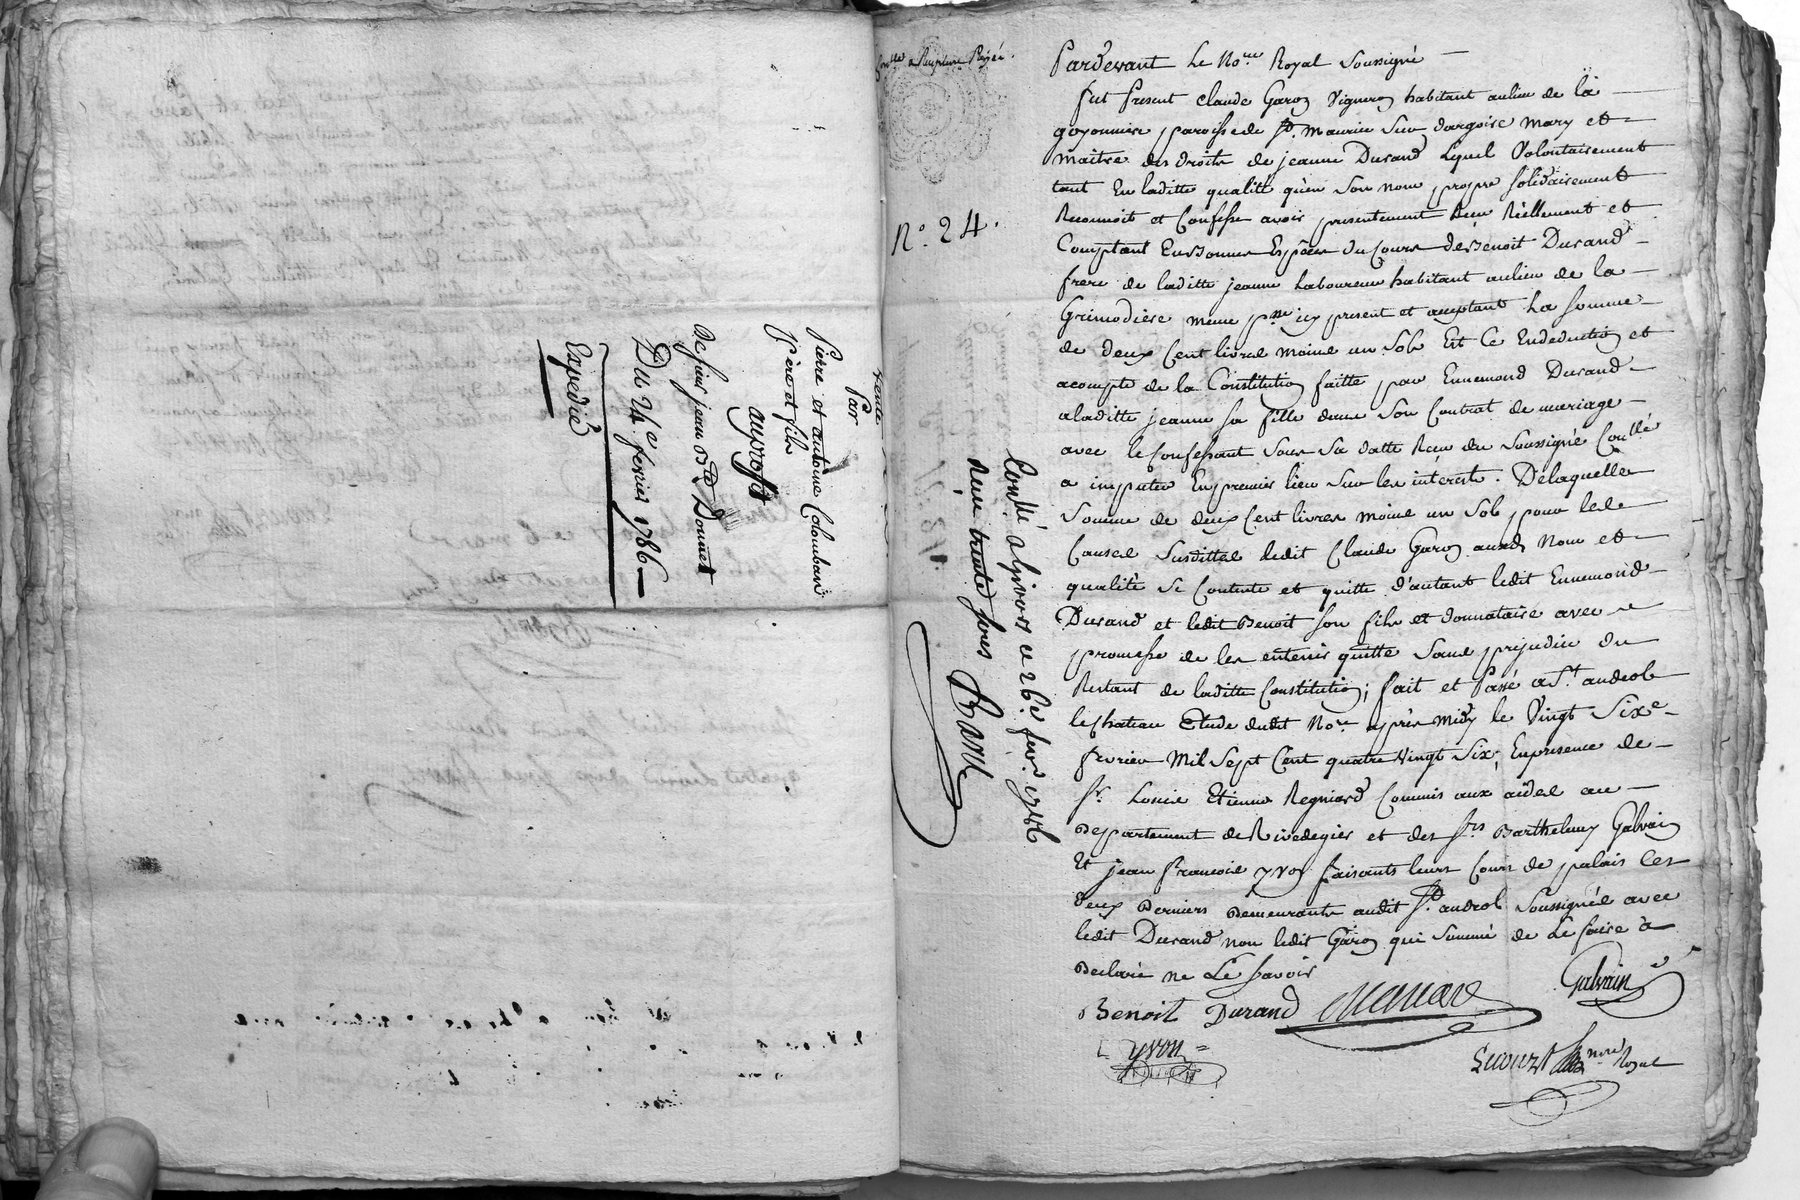 vente
Par
Pierre et antoine Colombans
Père et fils
au profit
de sieur jean Bte Donnet
Du 24e fevrier 1786
Expedié
N.° 24.
Conllé a Givors ce 26e fevr. 1786
reçu trente sous
Pardevant Le Nore Royal Soussigné
fut Present Claude Garon Vigneron habitant aulieu de la
goyonniere paroisse de St. Maurice Sur dargoire mary et
maitre des droits de jeanne Durand Lequel Volontairement
tant En laditte qualité qu'en Son nom propre solidairement
Reconnoit et Confesse avoir presentement Reçu Réellement et
Comptant En bonnes Espèces du Cours de Benoit Durand
frere de laditte jeanne Laboureur habitant aulieu de la
Grimodiere meme psse icy present et acceptant La somme
de deux Cent livres moins un Sols Et Ce En deduction et
acompte de la Constitution faitte par Ennemond Durand
a laditte jeanne sa fille dans Son Contrat de mariage
avec le Confessant Sous Sa datte Reçu du Soussigné Conllé
a imputer En premier lieu Sur les interets. De laquelle
Somme de deux Cent livres moins un Sols pour les
Causes Susdittes ledit Claude Garon auxds Nom et
qualité Se Contente et quitte d'autant ledit Ennemond
Durand et ledit Benoit Son fils et donnataire avec
promesse de les entenir quitte Sans prejudice du
Restant de laditte Constitution; fait et Passé a St. andeol
le Chateau Etude dudit Nore après midy le Vingt Sixe
fevrier Mil Sept Cent quatre Vingt Six, En presence de
Sr. Louis Etienne Regniard Commis aux aides au
Departement de Rivedegier et des Srs Barthelemy Galvain
Et jean francois yvon faisants leurs Cours de palais les
deux Derniers Demeurants audit St. andeol Soussignés avec
ledit Durand non ledit Garon qui Sommé de Le faire à
Declaré ne Le Savoir
Benoit Durand
Galvain
yvon
nore Royal